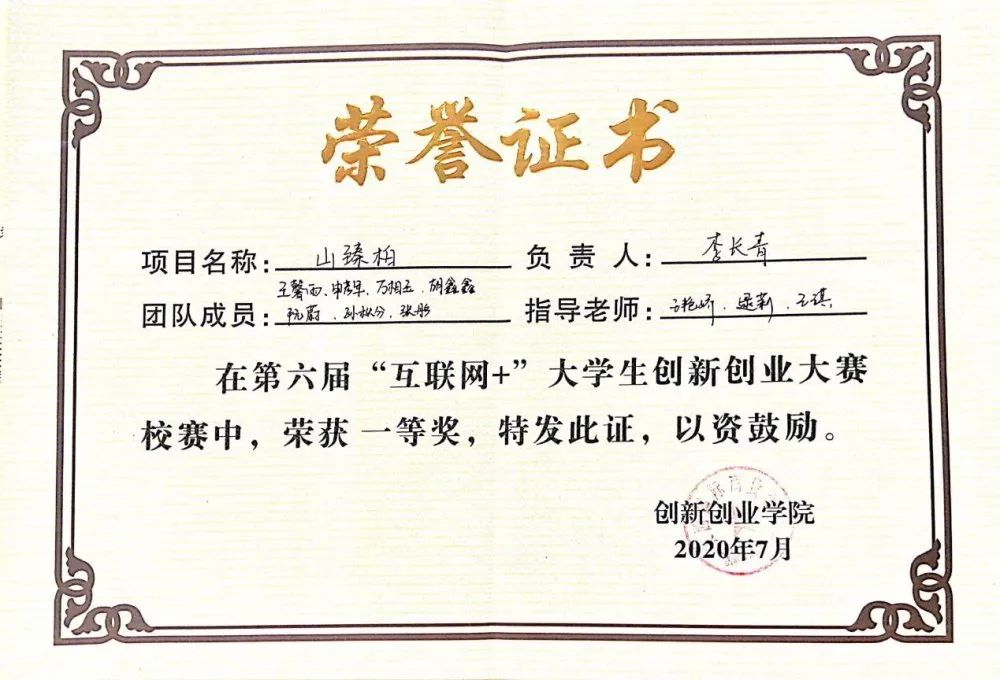 荣誉证书
项目名称：山臻柏 负责人：李长青
团队成员：王馨雨、申孝军、万相五、胡鑫鑫
阮蔚、孙秋分、张彤
指导老师：梁新、王琪
在第六届“互联网+”大学生创新创业大赛
校赛中，荣获一等奖，特发此证，以资鼓励。
创新创业学院
2020年7月